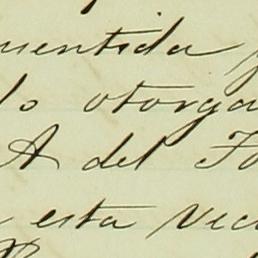 uentida
lo otorga
A del Fo
esta veci